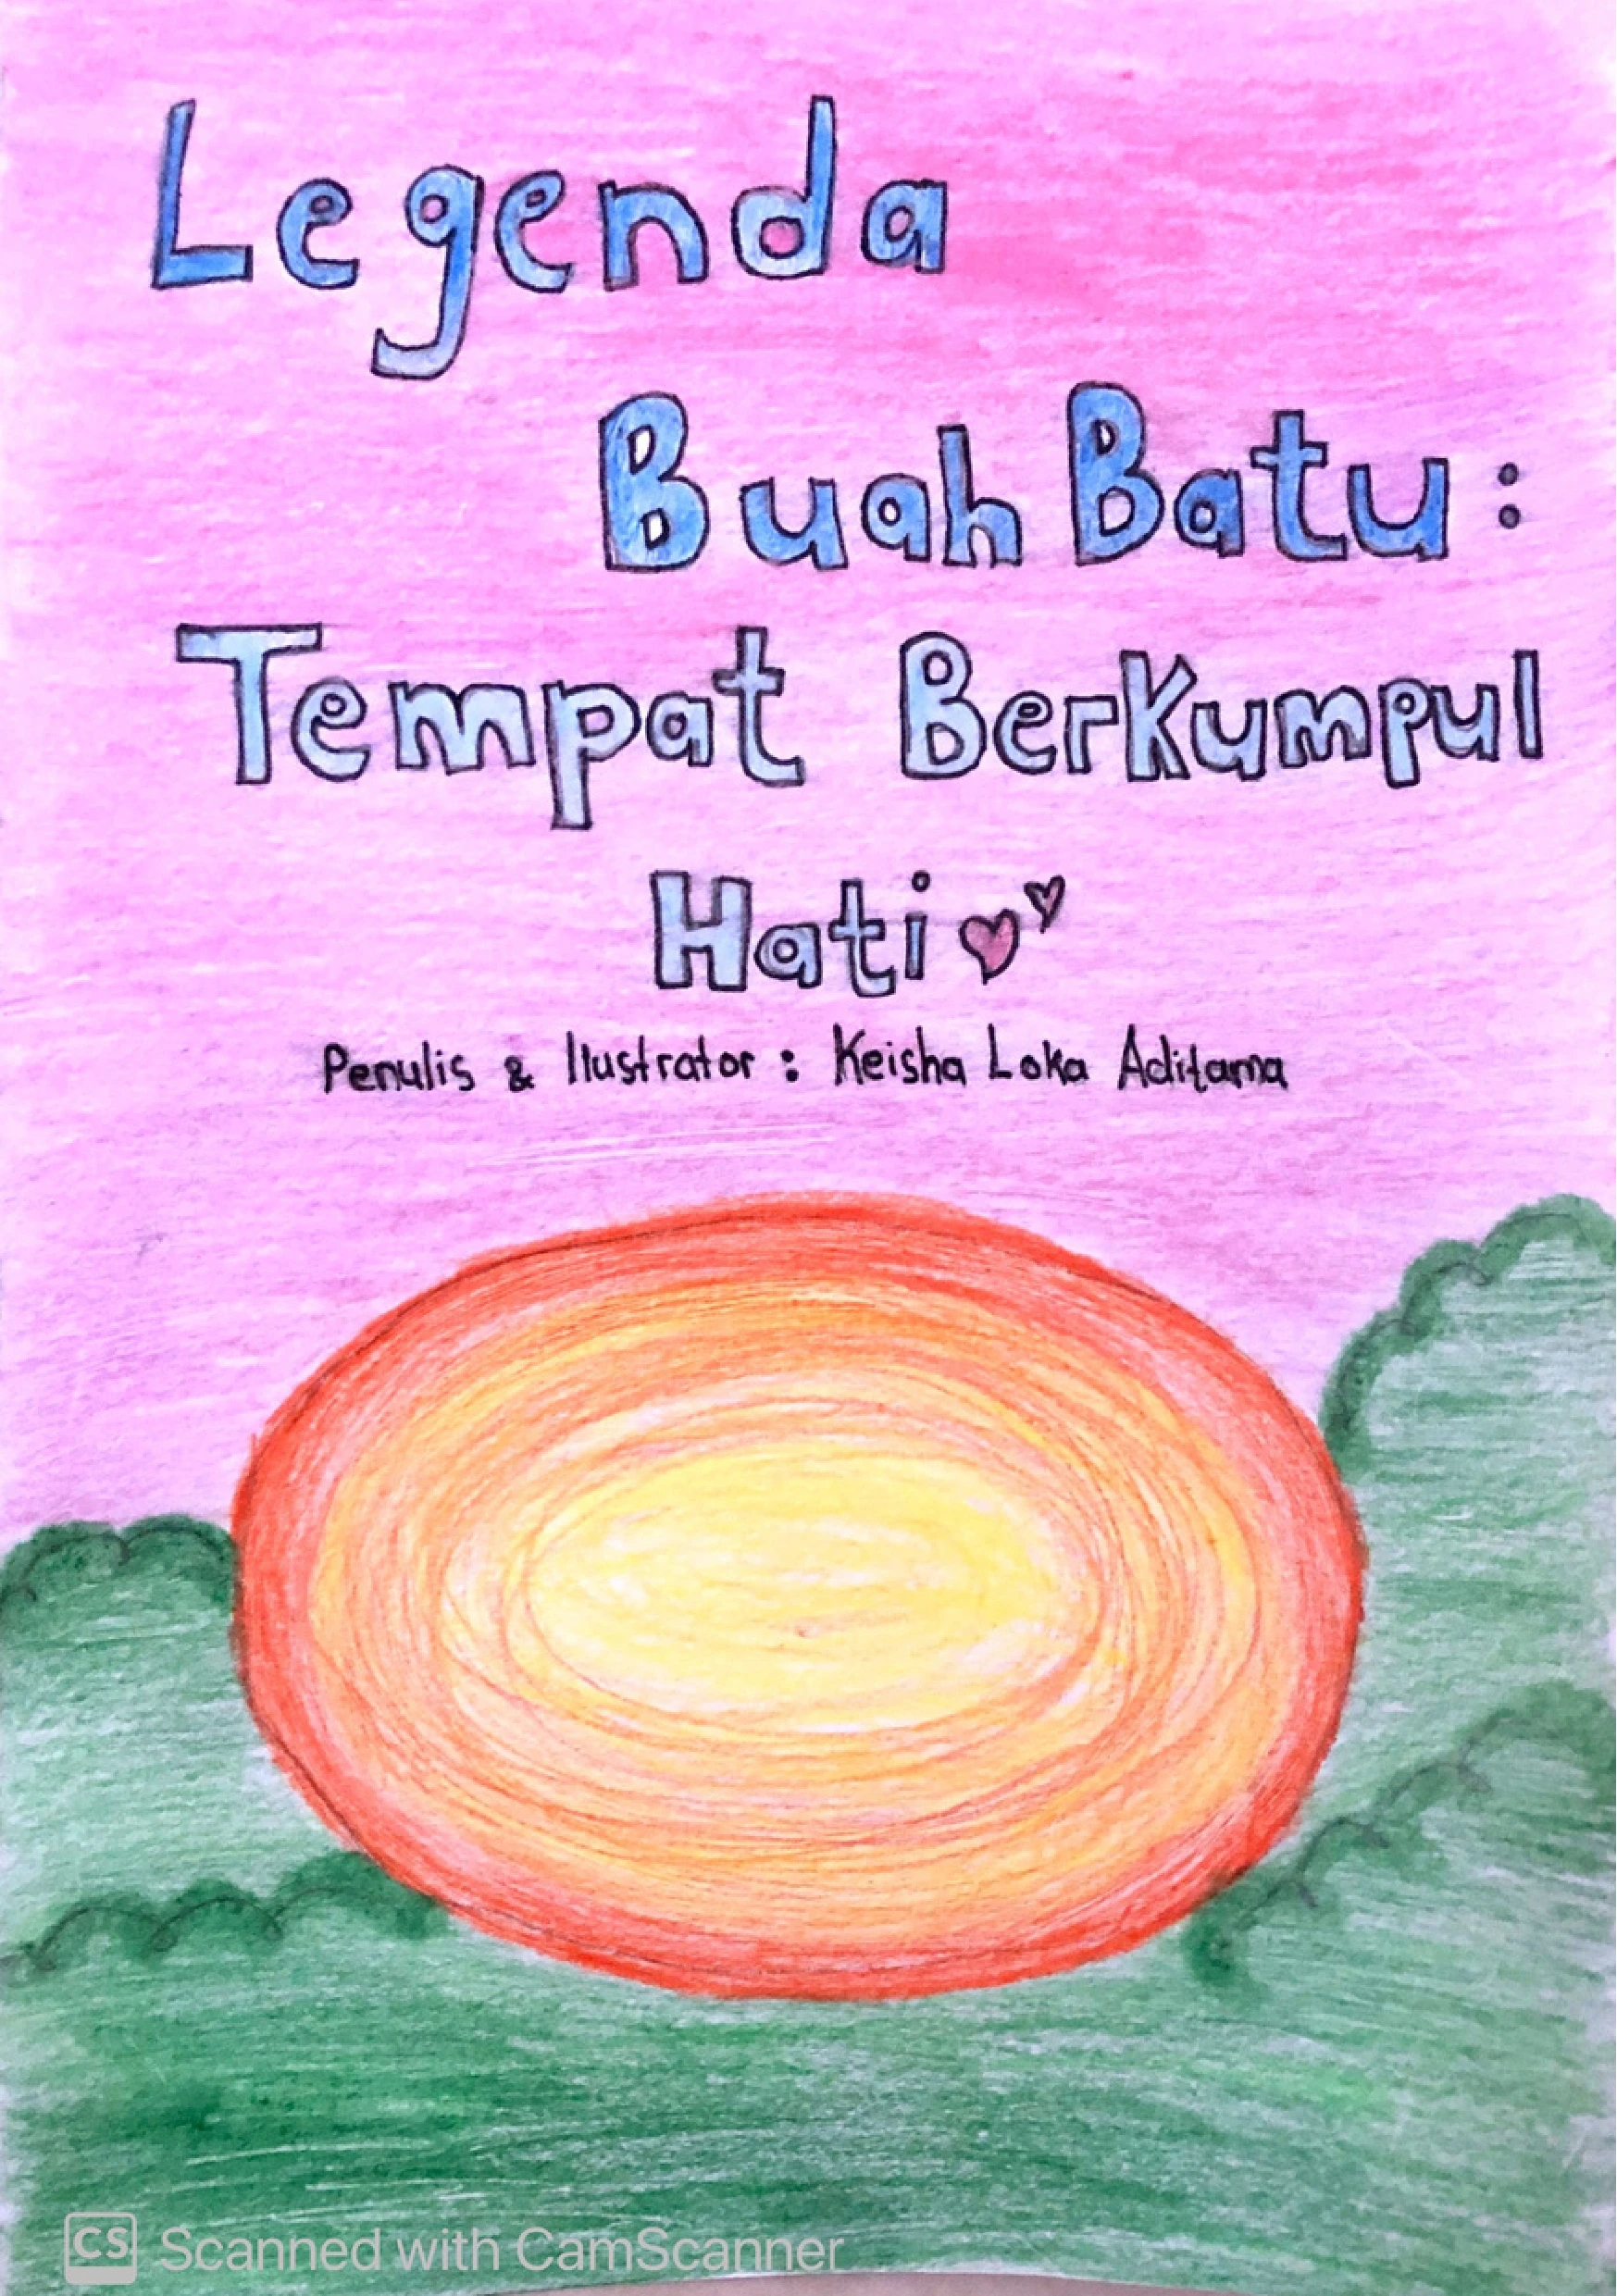 Legenda
Buah Batu :
Tempat Berkumpul
Hati
Penulis & Ilustrator : Keisha Loka Aditama
CS Scanned with CamScanner